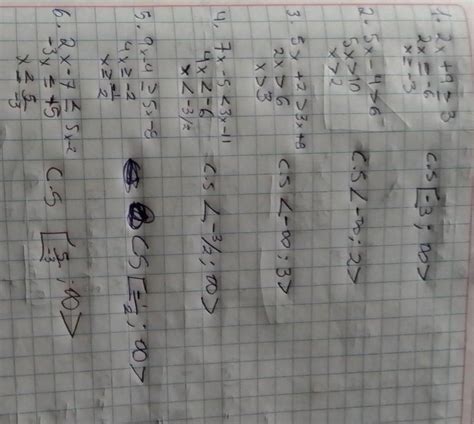 1. 2x + 9 ≥ 3
2x ≥ -6
x ≥ -3
C.S [-3 ; ∞>
2. 5x - 4 > 6
5x > 10
x > 2
C.S <-∞ : 2>
3. 5x + 2 > 3x + 8
2x > 6
x > 3
C.S <-∞ : 3>
4. 7x - 5 < 3x - 11
4x ≤ -6
x < -3/2
C.S < -3/2 ; ∞>
5. 9x - 4 ≥ 5x - 6
4x ≥ -2
x ≥ -1/2
CS [-1/2 ; ∞>
6. 2x - 7 ≤ 5x - 2
-3x ≤ +5
x ≥ 5/-3
C.S [5/-3 ; ∞>